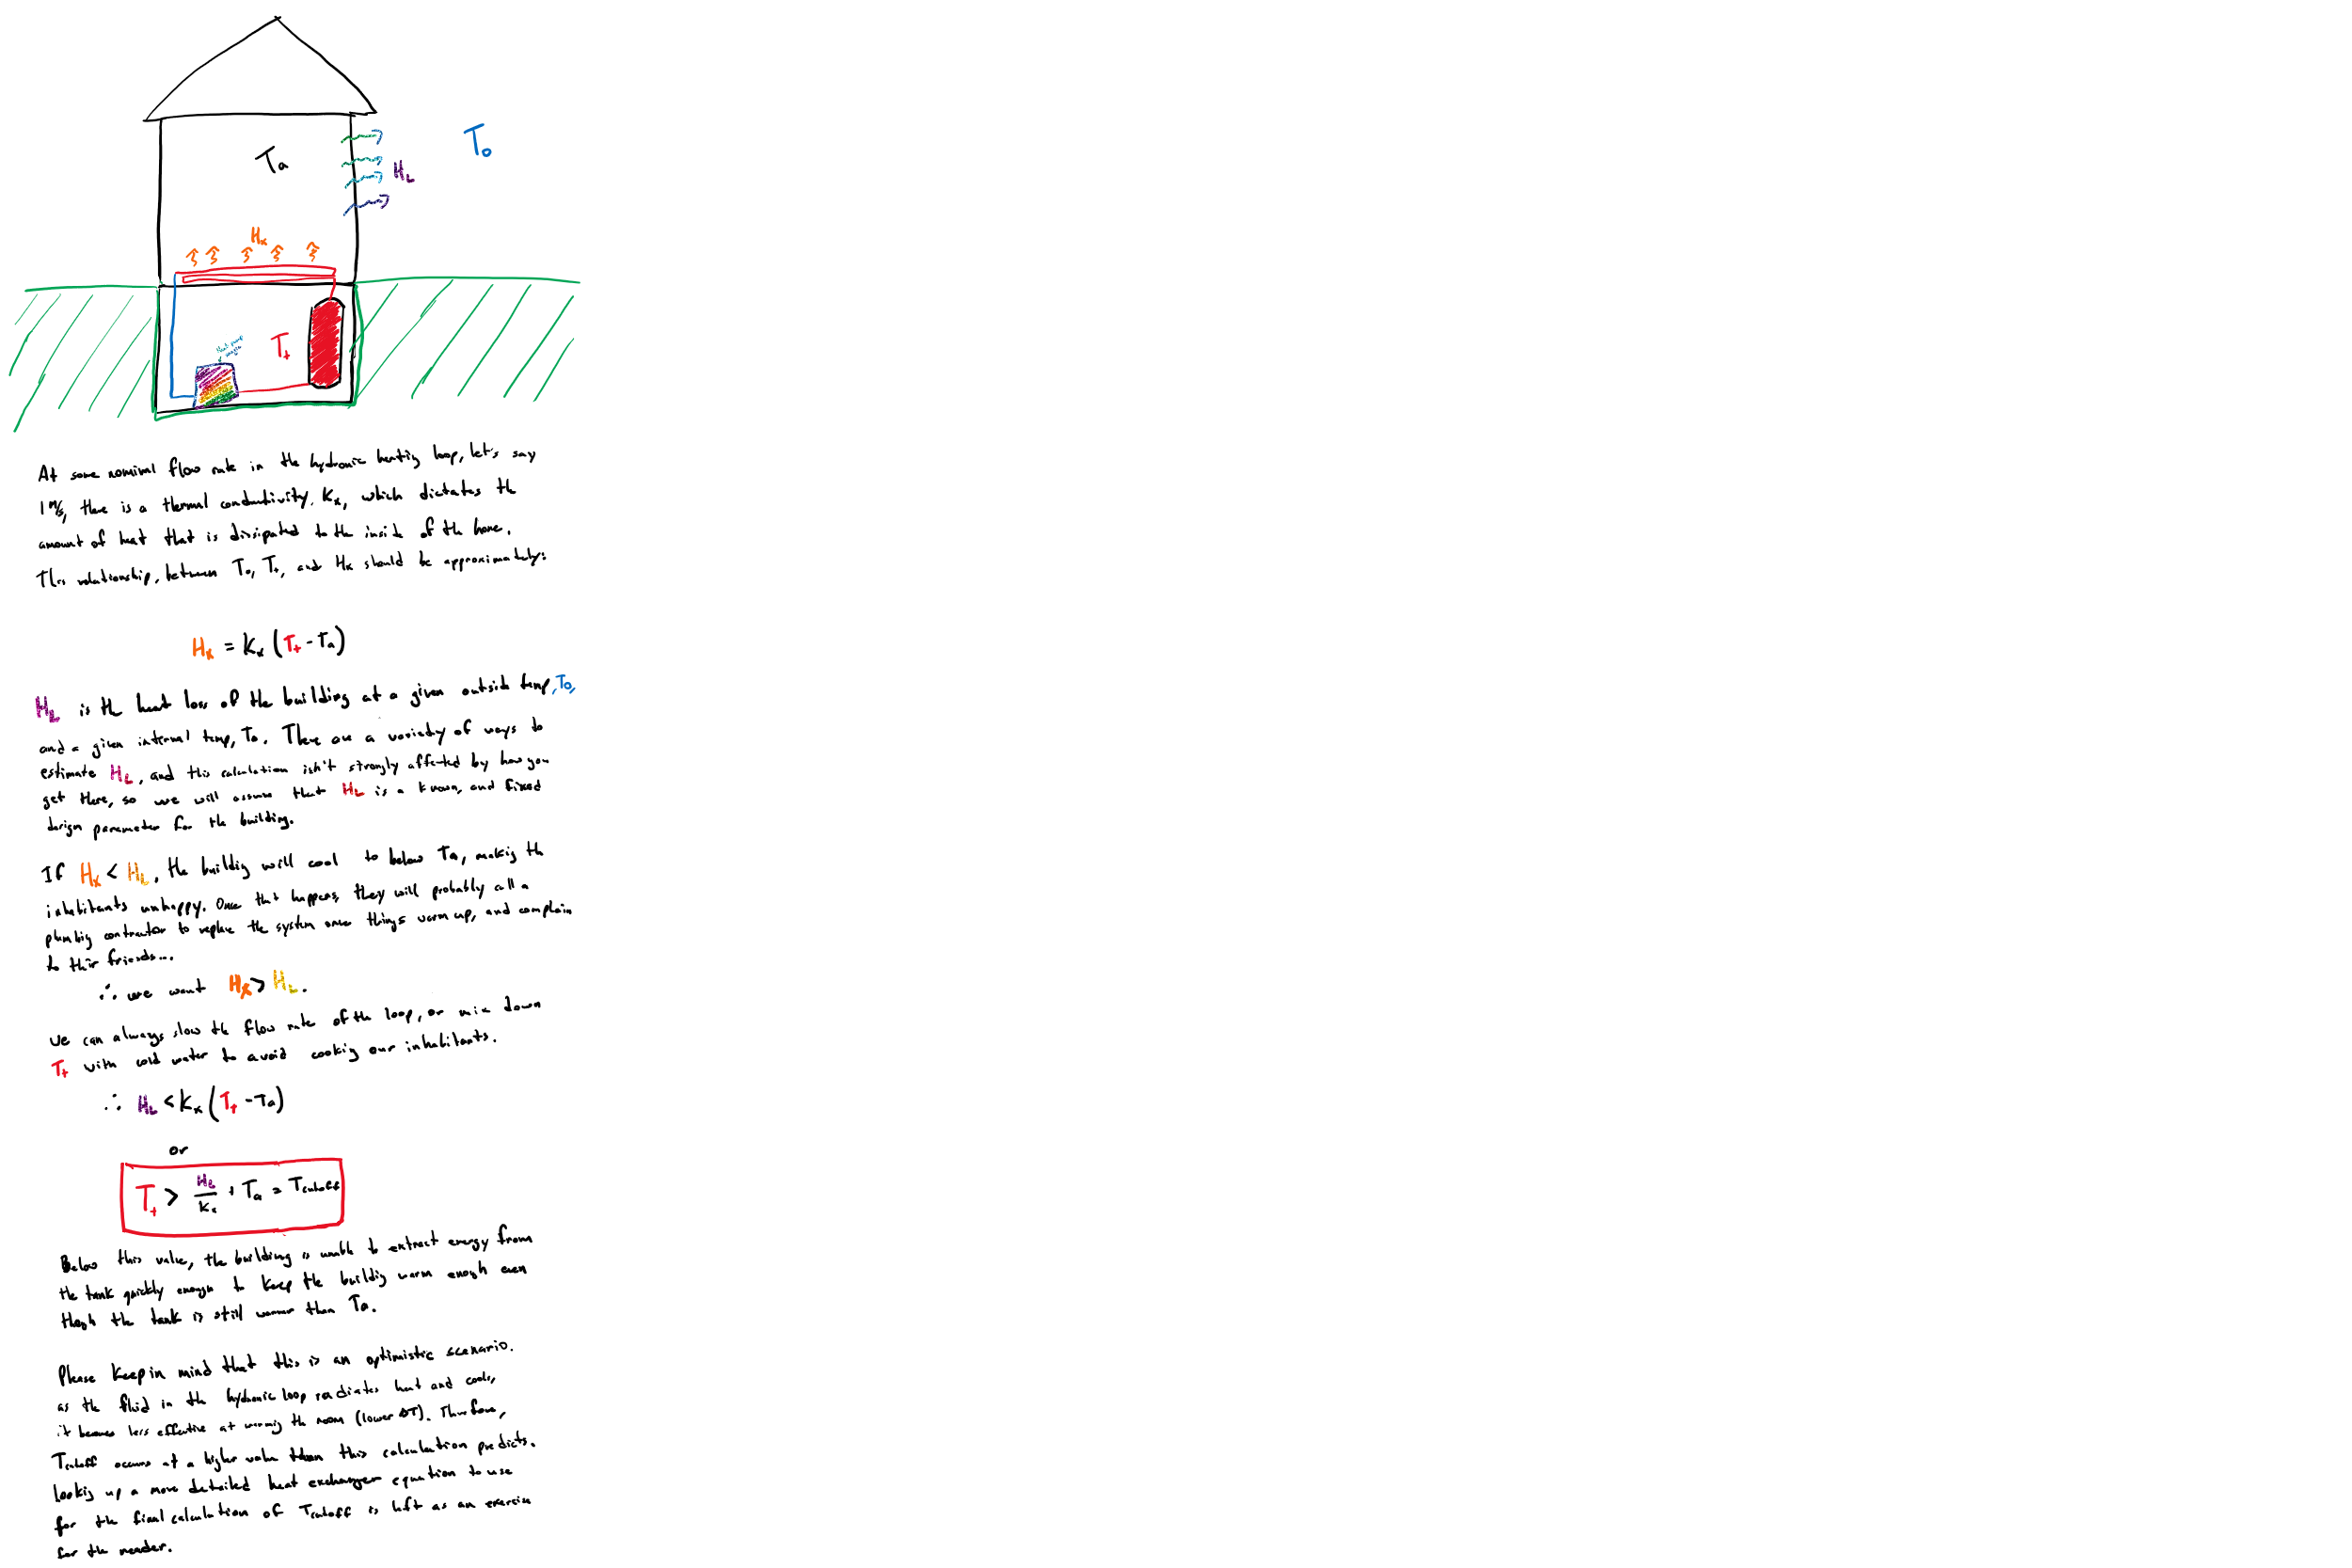 Ta
To
HL
Hx
Tt
Heat pump
At some nominal flow rate in the hydronic heating loop, let's say
1 m/s, there is a thermal conductivity, Kx, which dictates the
amount of heat that is dissipated to the inside of the home.
This relationship, between To, Tt, and Hx should be approximately:
Hx = Kx (Tt - Ta)
HL is the heat loss of the building at a given outside temp, To,
and a given internal temp, Ta. There are a variety of ways to
estimate HL, and this calculation isn't strongly affected by how you
get there, so we will assume that HL is a known, and fixed
design parameter for the building.
If Hx < HL, the building will cool to below Ta, making the
inhabitants unhappy. Once that happens, they will probably call a
plumbing contractor to replace the system once things warm up, and complain
to their friends...
∴ we want Hx > HL.
We can always slow the flow rate of the loop, or mix down
Tt with cold water to avoid cooking our inhabitants.
∴ HL < Kx (Tt - Ta)
or
Tt > HL/Kx + Ta = Tcutoff
Below this value, the building is unable to extract energy from
the tank quickly enough to keep the building warm enough even
though the tank is still warmer than Ta.
Please keep in mind that this is an optimistic scenario.
as the fluid in the hydronic loop radiates heat and cools,
it becomes less effective at warming the room (lower ΔT). Therefore,
Tcutoff occurs at a higher value than this calculation predicts.
Looking up a more detailed heat exchanger equation to use
for the final calculation of Tcutoff is left as an exercise
for the reader.